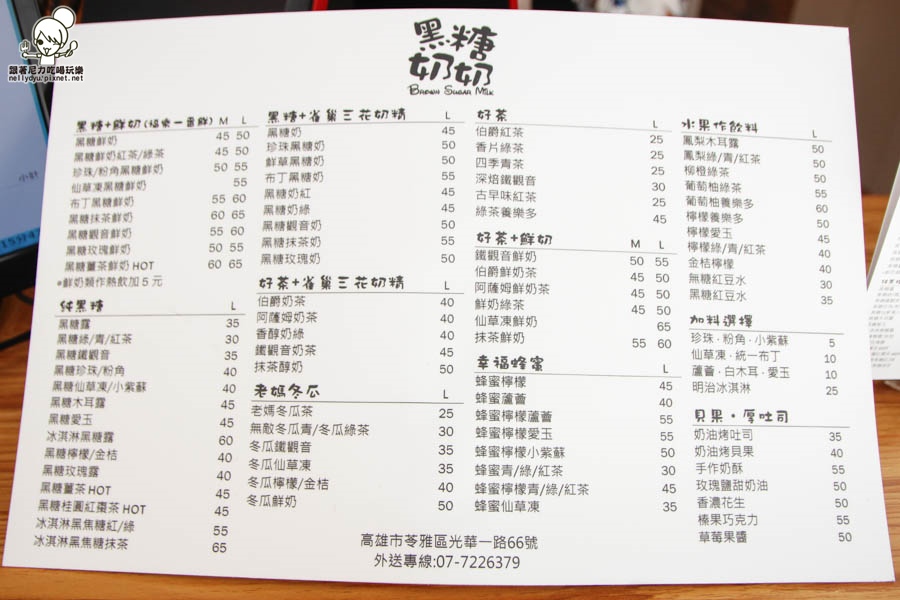 跟著尼力吃喝玩樂
nellydyu.pixnet.net
黑糖奶奶
BROWN SUGAR MILK
黑糖+鮮奶(福樂一番鮮) M L
黑糖鮮奶 45 50
黑糖鮮奶紅茶/綠茶 45 50
珍珠/粉角黑糖鮮奶 50 55
仙草凍黑糖鮮奶 55
布丁黑糖鮮奶 55 60
黑糖抹茶鮮奶 60 65
黑糖觀音鮮奶 55 60
黑糖玫瑰鮮奶 50 55
黑糖薑茶鮮奶 HOT 60 65
*鮮奶類作熱飲加5元
純黑糖 L
黑糖露 35
黑糖綠/青/紅茶 30
黑糖鐵觀音 35
黑糖珍珠/粉角 40
黑糖仙草凍/小紫蘇 40
黑糖木耳露 45
黑糖愛玉 45
冰淇淋黑糖露 60
黑糖檸檬/金桔 40
黑糖玫瑰露 40
黑糖薑茶 HOT 45
黑糖桂圓紅棗茶 HOT 45
冰淇淋黑焦糖紅/綠 55
冰淇淋黑焦糖抹茶 65
黑糖+雀巢三花奶精 L
黑糖奶 45
珍珠黑糖奶 50
鮮草黑糖奶 50
布丁黑糖奶 55
黑糖奶紅 45
黑糖奶綠 45
黑糖觀音奶 50
黑糖抹茶奶 55
黑糖玫瑰奶 50
好茶+雀巢三花奶精 L
伯爵奶茶 40
阿薩姆奶茶 40
香醇奶綠 40
鐵觀音奶茶 45
抹茶醇奶 50
老媽冬瓜 L
老媽冬瓜茶 25
無敵冬瓜青/冬瓜綠茶 30
冬瓜鐵觀音 35
冬瓜仙草凍 35
冬瓜檸檬/金桔 40
冬瓜鮮奶 50
好茶 L
伯爵紅茶 25
香片綠茶 25
四季青茶 25
深焙鐵觀音 30
古早味紅茶 25
綠茶養樂多 45
好茶+鮮奶 M L
鐵觀音鮮奶 50 55
伯爵鮮奶茶 45 50
阿薩姆鮮奶茶 45 50
鮮奶綠茶 45 50
仙草凍鮮奶 65
抹茶鮮奶 55 60
幸福蜂蜜 L
蜂蜜檸檬 45
蜂蜜蘆薈 40
蜂蜜檸檬蘆薈 55
蜂蜜檸檬愛玉 55
蜂蜜檸檬小紫蘇 50
蜂蜜青/綠/紅茶 30
蜂蜜檸檬青/綠/紅茶 45
蜂蜜仙草凍 35
水果作飲料 L
鳳梨木耳露 50
鳳梨綠/青/紅茶 50
柳橙綠茶 50
葡萄柚綠茶 55
葡萄柚養樂多 60
檸檬養樂多 50
檸檬愛玉 45
檸檬綠/青/紅茶 40
金桔檸檬 40
無糖紅豆水 30
黑糖紅豆水 35
加料選擇
珍珠.粉角.小紫蘇 5
仙草凍.統一布丁 10
蘆薈.白木耳.愛玉 10
明治冰淇淋 25
貝果·厚吐司
奶油烤吐司 35
奶油烤貝果 40
手作奶酥 55
玫瑰鹽甜奶油 50
香濃花生 50
榛果巧克力 55
草莓果醬 50
高雄市苓雅區光華一路66號
外送專線:07-7226379